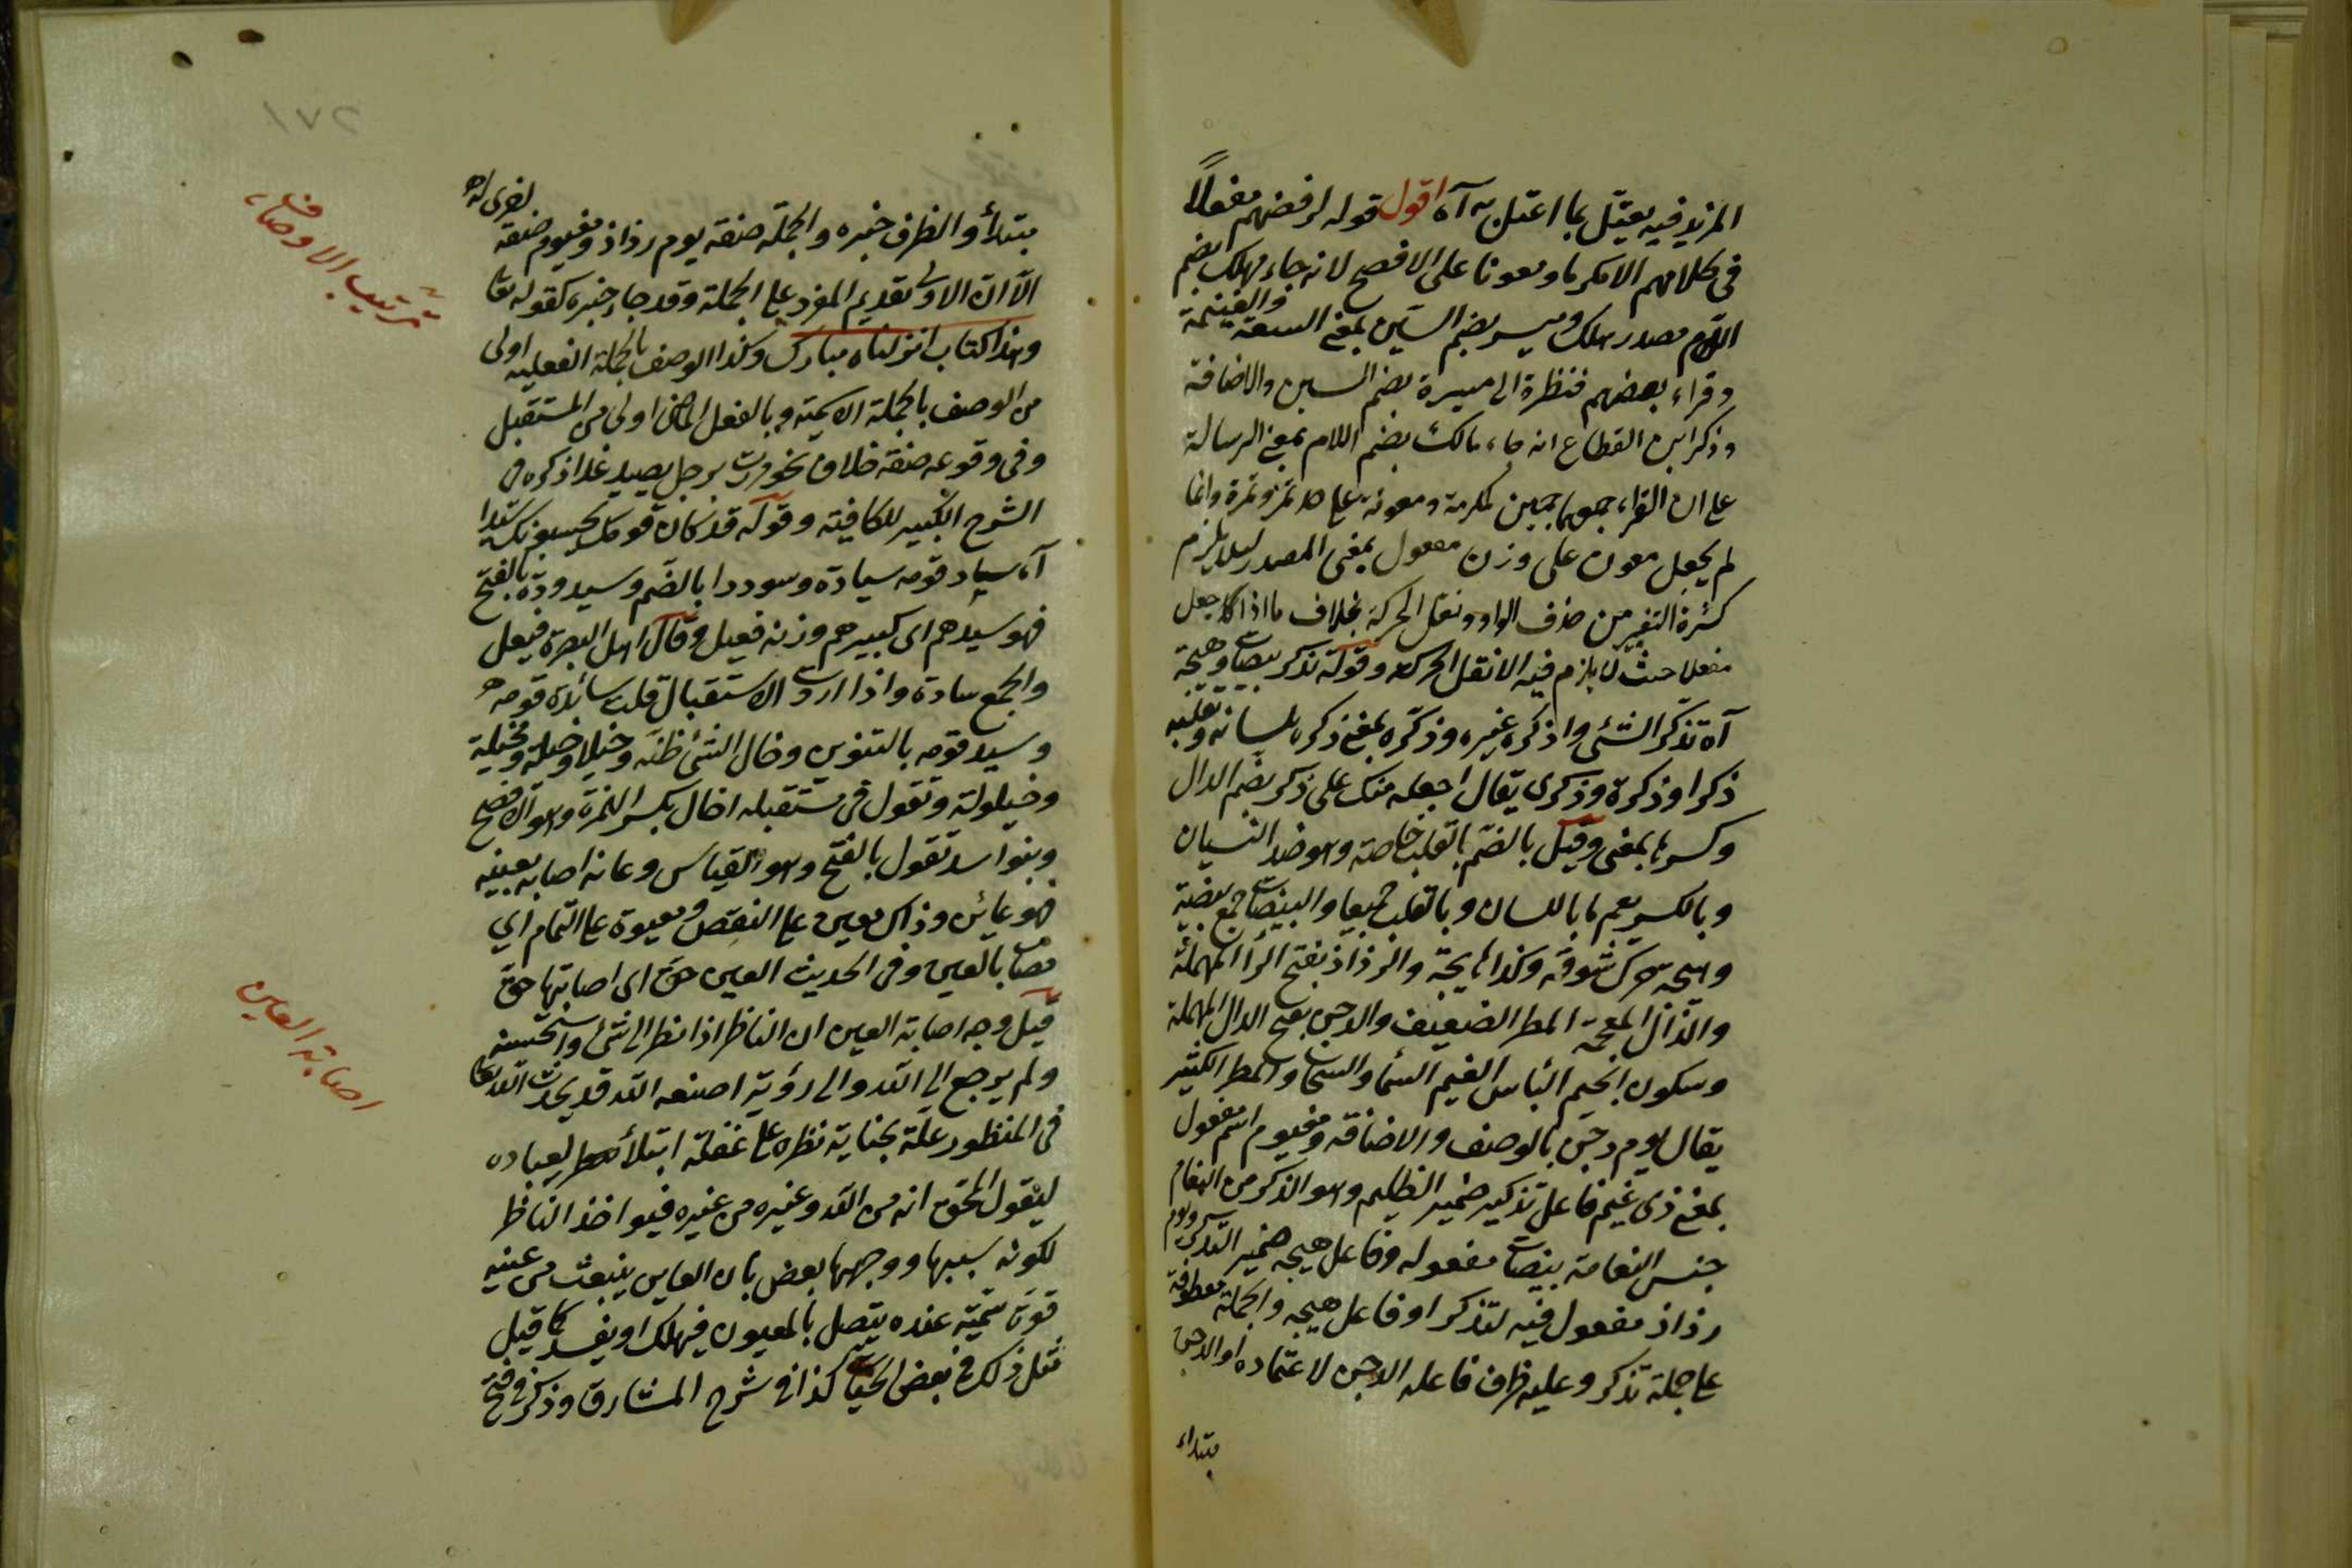 المزيد فيه يعتل بما اعتل به آه اقول قوله لرفضهم مفعلاً
فى كلامهم الا مكرما ومعونا على الافصح لانه جاء مهلك بضم
اللام مصدر هلك وميسر بضم السين بمعنى السعة والغنيمة
وقراء بعضهم فنظرة الى ميسرة بضم السين والاضافة
وذكر ابن القطاع انه جاء مالك بضم اللام بمعنى الرسالة
على ان الفراء جمعين لمكرمة ومعونة على حد تمر وتمرة وانما
لم يجعل معون على وزن مفعول بمعنى المصدر لئلا يلزم
كثرة التغيير من حذف الواو ونقل الحركة بخلاف ما اذا كا جعل
مفعلا حيث لا يلزم فيه الا نقل الحركة وقوله تذكر بيضات وهيجة
آه تذكر الشئ واذكره غيره وذكره بمعنى ذكره بلسانه وبقلبه
ذكرا وذكرة وذكرى يقال اجعله منك على ذكر بضم الذال
وكسرها بمعنى وقيل بالضم بالقلب خاصة وهو ضد النسيان
وبالكسر يعم ما باللسان وبالقلب جميعا والبيضات جمع بيضة
وهيجه حرك شوقه وكذا هايجة والرذاذ بفتح الراء المهملة
والذال المعجمة المطر الضعيف والدجن بفتح الدال المهملة
وسكون الجيم الباس الغيم السماء والسحاب والمطر الكثير
يقال يوم دجن بالوصف والاضافة ومغيوم اسم مفعول
بمعنى ذى غيم فاعل تذكير ضمير الظليم وهو الذكر من النعام
جنس النعامة بيضات مفعوله وفاعل هيجه ضمير التذكر ويوم
رذاذ مفعول فيه لتذكر او فاعل هيجه والجملة معطوفة
على جملة تذكر وعليه ظرف فاعله الدجن لاعتماده او الدجن
بتداء
١٧٢
مبتدأ والظرف خبره والجملة صفة يوم رذاذ ومغيوم صفة
الا ان الاولى تقديم المفرد على الجملة وقد جاء خبره كقوله تعا
وهذا كتاب انزلناه مبارك وكذا الوصف بالجملة الفعلية اولى
من الوصف بالجملة الاسمية وبالفعل الماضى اولى من المستقبل
وفى وقوعه صفة خلاف نحو مررت برجل يصيد غدا ذكره فى
الشرح الكبير للكافية وقوله قد كان قومك يحسبونك سيدا
آه ساد قومه سيادة وسوددا بالضم وسيدودة بالفتح
فهو سيدهم اى كبيرهم وزنه فعيل وقال اهل البصرة فيعل
والجمع سادة واذا اردت الاستقبال قلت سائدة قومه
وسيد قومه بالتنوين وخال الشئ ظنه وخيلا وخيلة ومخيلة
وخيلولة وتقول فى مستقبله اخال بكسر الهمزة وهو الافصح
وبنو اسد تقول بالفتح وهو القياس وعانه اصابه بعينه
فهو عائن وذاك معين على النقص ومعيون على التمام اي
مصاب بالعين وفى الحديث العين حق اى اصابتها حق
قيل وجه اصابة العين ان الناظر اذا نظر الى شئ واستحسنه
ولم يرجع الى الله والى رؤية صنعه الله قد يحدث الله تعا
فى المنظور علة بجناية نظره على غفلة ابتلاء لعباده
ليقول المحق انه من الله وغيره من غيره فيواخذ الناظر
لكونه سببها ووجهها بعض بان العاين ينبعث من عينه
قوة سمية عنده يتصل بالمعيون فيهلك او يفسد كما قيل
مثل ذلك فى بعض الحيات كذا فى شرح المشارق وذكر فى فتح
ترتيب الاوصاف
اصابة العين